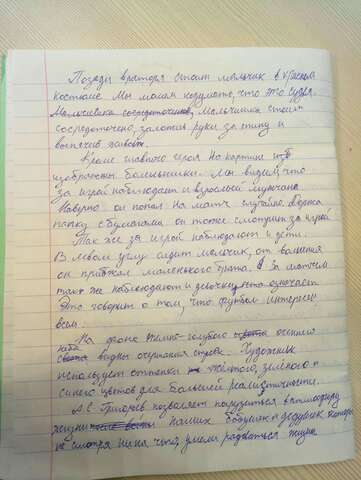 Позади вратаря стоит мальчик в красном
костюме. Мы можем подумать, что это судья.
Мальчишка сосредоточенно, Мальчишка стоит
сосредоточено, заложив руки за спину и
выпятив живот.
Кроме главного героя на картине
изображены болельщики. Мы видим что
за игрой наблюдает и взрослый мужчина
Наверно он попал на матч случайно. Держа
папку с бумагами он тоже смотрит за игрой
Так же за игрой наблюдают и дети.
В левом углу сидит мальчик, от волнения
он прижал маленького брата. За матчем
так же наблюдают и девочки, что означает
Это говорит о том, что футбол интересен
всем.
На фоне темно-голубого осеннего
неба видны очертания города. Художник
использует оттенки жёлтого, зелёного и
синего цветов для большей реалистичности.
А.С. Григорьев позволяет погрузиться в атмосферу
жизни наших бабушек и дедушек которые
не смотря ни на что, умели радоваться жизни